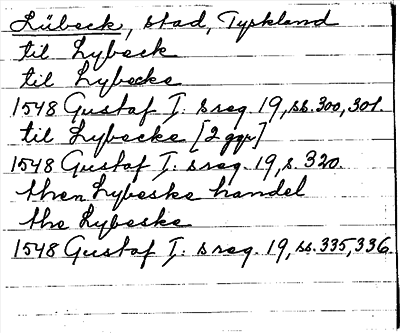 Lübeck, stad, Tyskland
til Lybeck
til Lybecke
1548 Gustaf I: s reg. 19, ss. 300, 301.
til Lybecke [2 ggr]
1548 Gustaf I: s reg. 19, s. 320.
then Lybeske handel
the Lybeske
1548 Gustaf I: s reg. 19, ss. 335, 336.